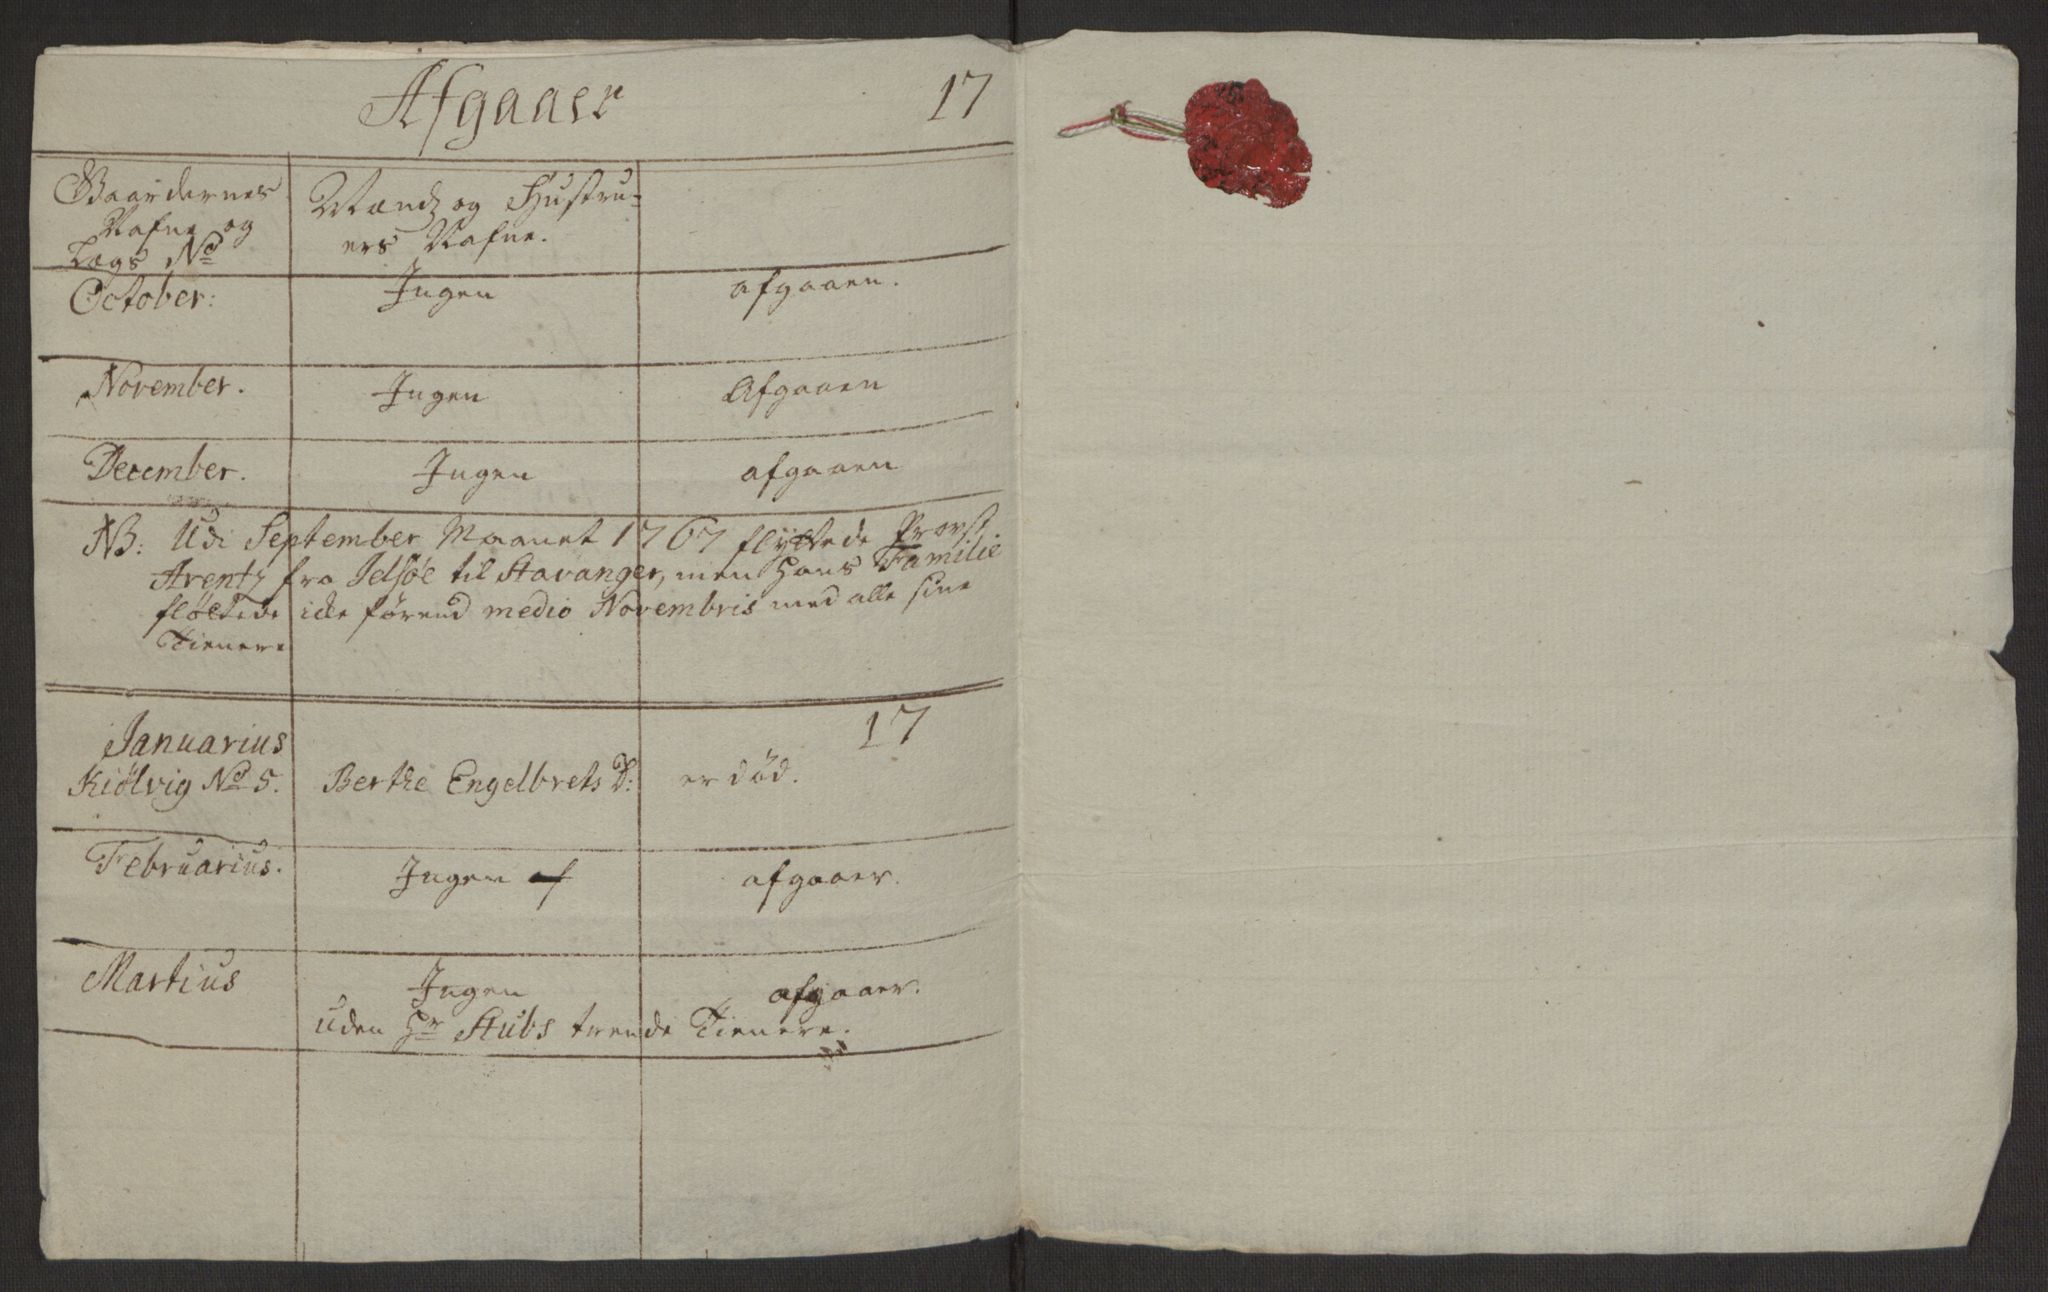 Afgaaer 17
Gaardernes
Nafne og
Lægs No
Mænd og Hustru-
ers Nafne.
October: Ingen afgaaen.
November. Ingen Afgaaen
December. Ingen afgaaen
NB: Udi September Maanet 1767 flyttede Provst
Arentz fra Jelsöe til Stavanger, men Hans Familie
flöttede icke førend medio Novembris med alle sine
Tienere
Januarius 17
Kiölvig No 5. Berthe Engelbrets D: er död.
Februarius. Ingen af afgaaer.
Martius Ingen afgaaer.
uden Hr Stubs trende Tienere.